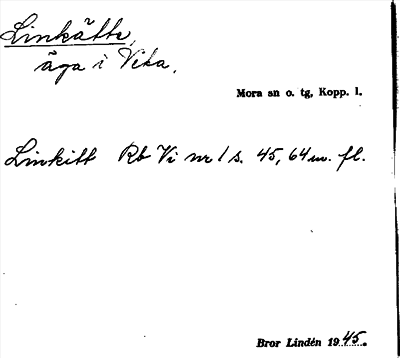 Linkätte,
äga i Veka.
Mora sn o. tg, Kopp. l.
Linkitt Rb Vi nr 1 s. 45, 64 m. fl.
Bror Lindén 1945.